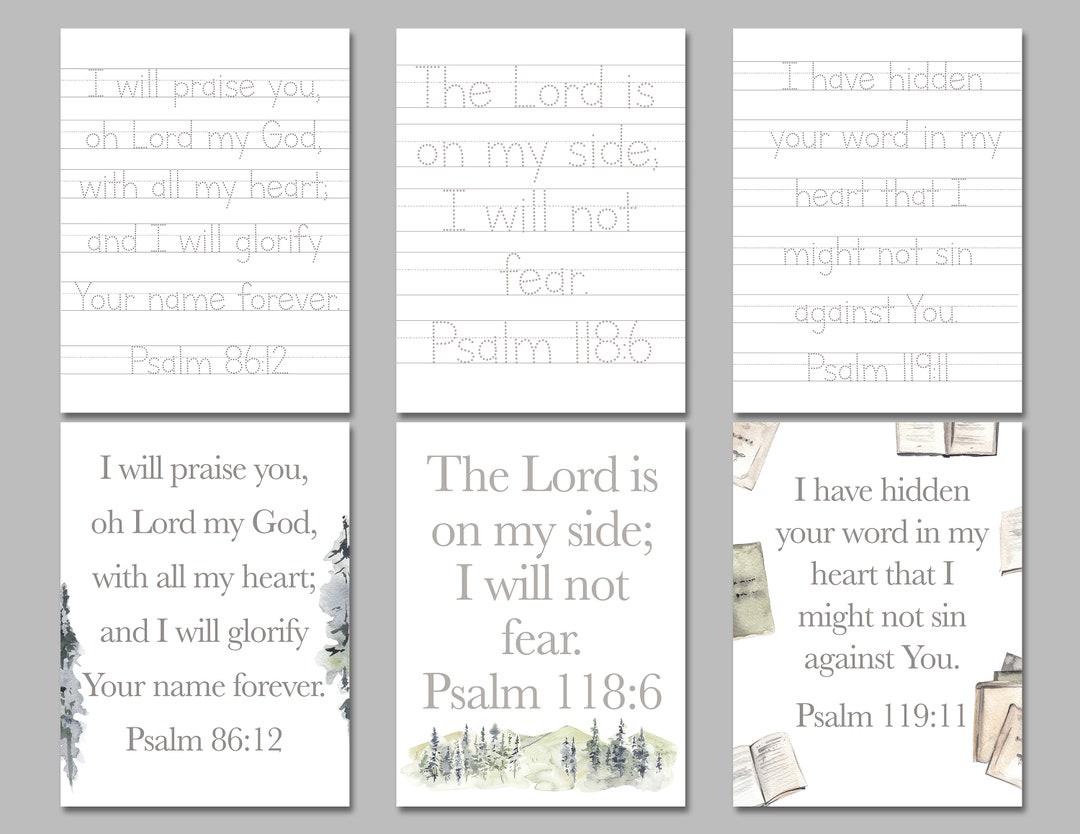 I will praise you,
oh Lord my God,
with all my heart;
and I will glorify
Your name forever.
Psalm 86:12
The Lord is
on my side;
I will not
fear.
Psalm 118:6
I have hidden
your word in my
heart that I
might not sin
against You.
Psalm 119:11
I will praise you,
oh Lord my God,
with all my heart;
and I will glorify
Your name forever.
Psalm 86:12
The Lord is
on my side;
I will not
fear.
Psalm 118:6
I have hidden
your word in my
heart that I
might not sin
against You.
Psalm 119:11